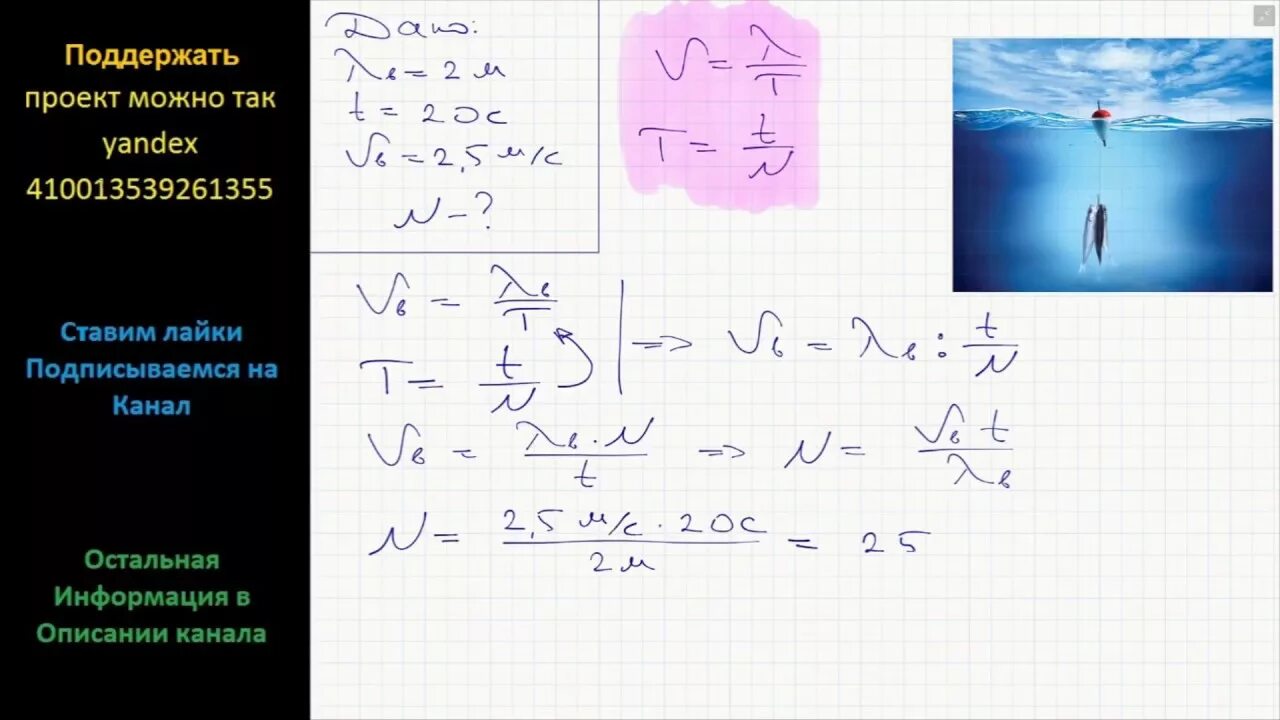 Поддержать
проект можно так
yandex
410013539261355
Ставим лайки
Подписываемся на
Канал
Остальная
Информация в
Описании канала
Дано:
λв = 2 м
t = 20с
Vв = 2,5 м/с
N - ?
V = λ/T
T = t/N
Vв = λв/T
T = t/N
=> Vв = λв : t/N
Vв = λв · N/t => N = Vв t/λв
N = 2,5 м/с · 20с/2м = 25